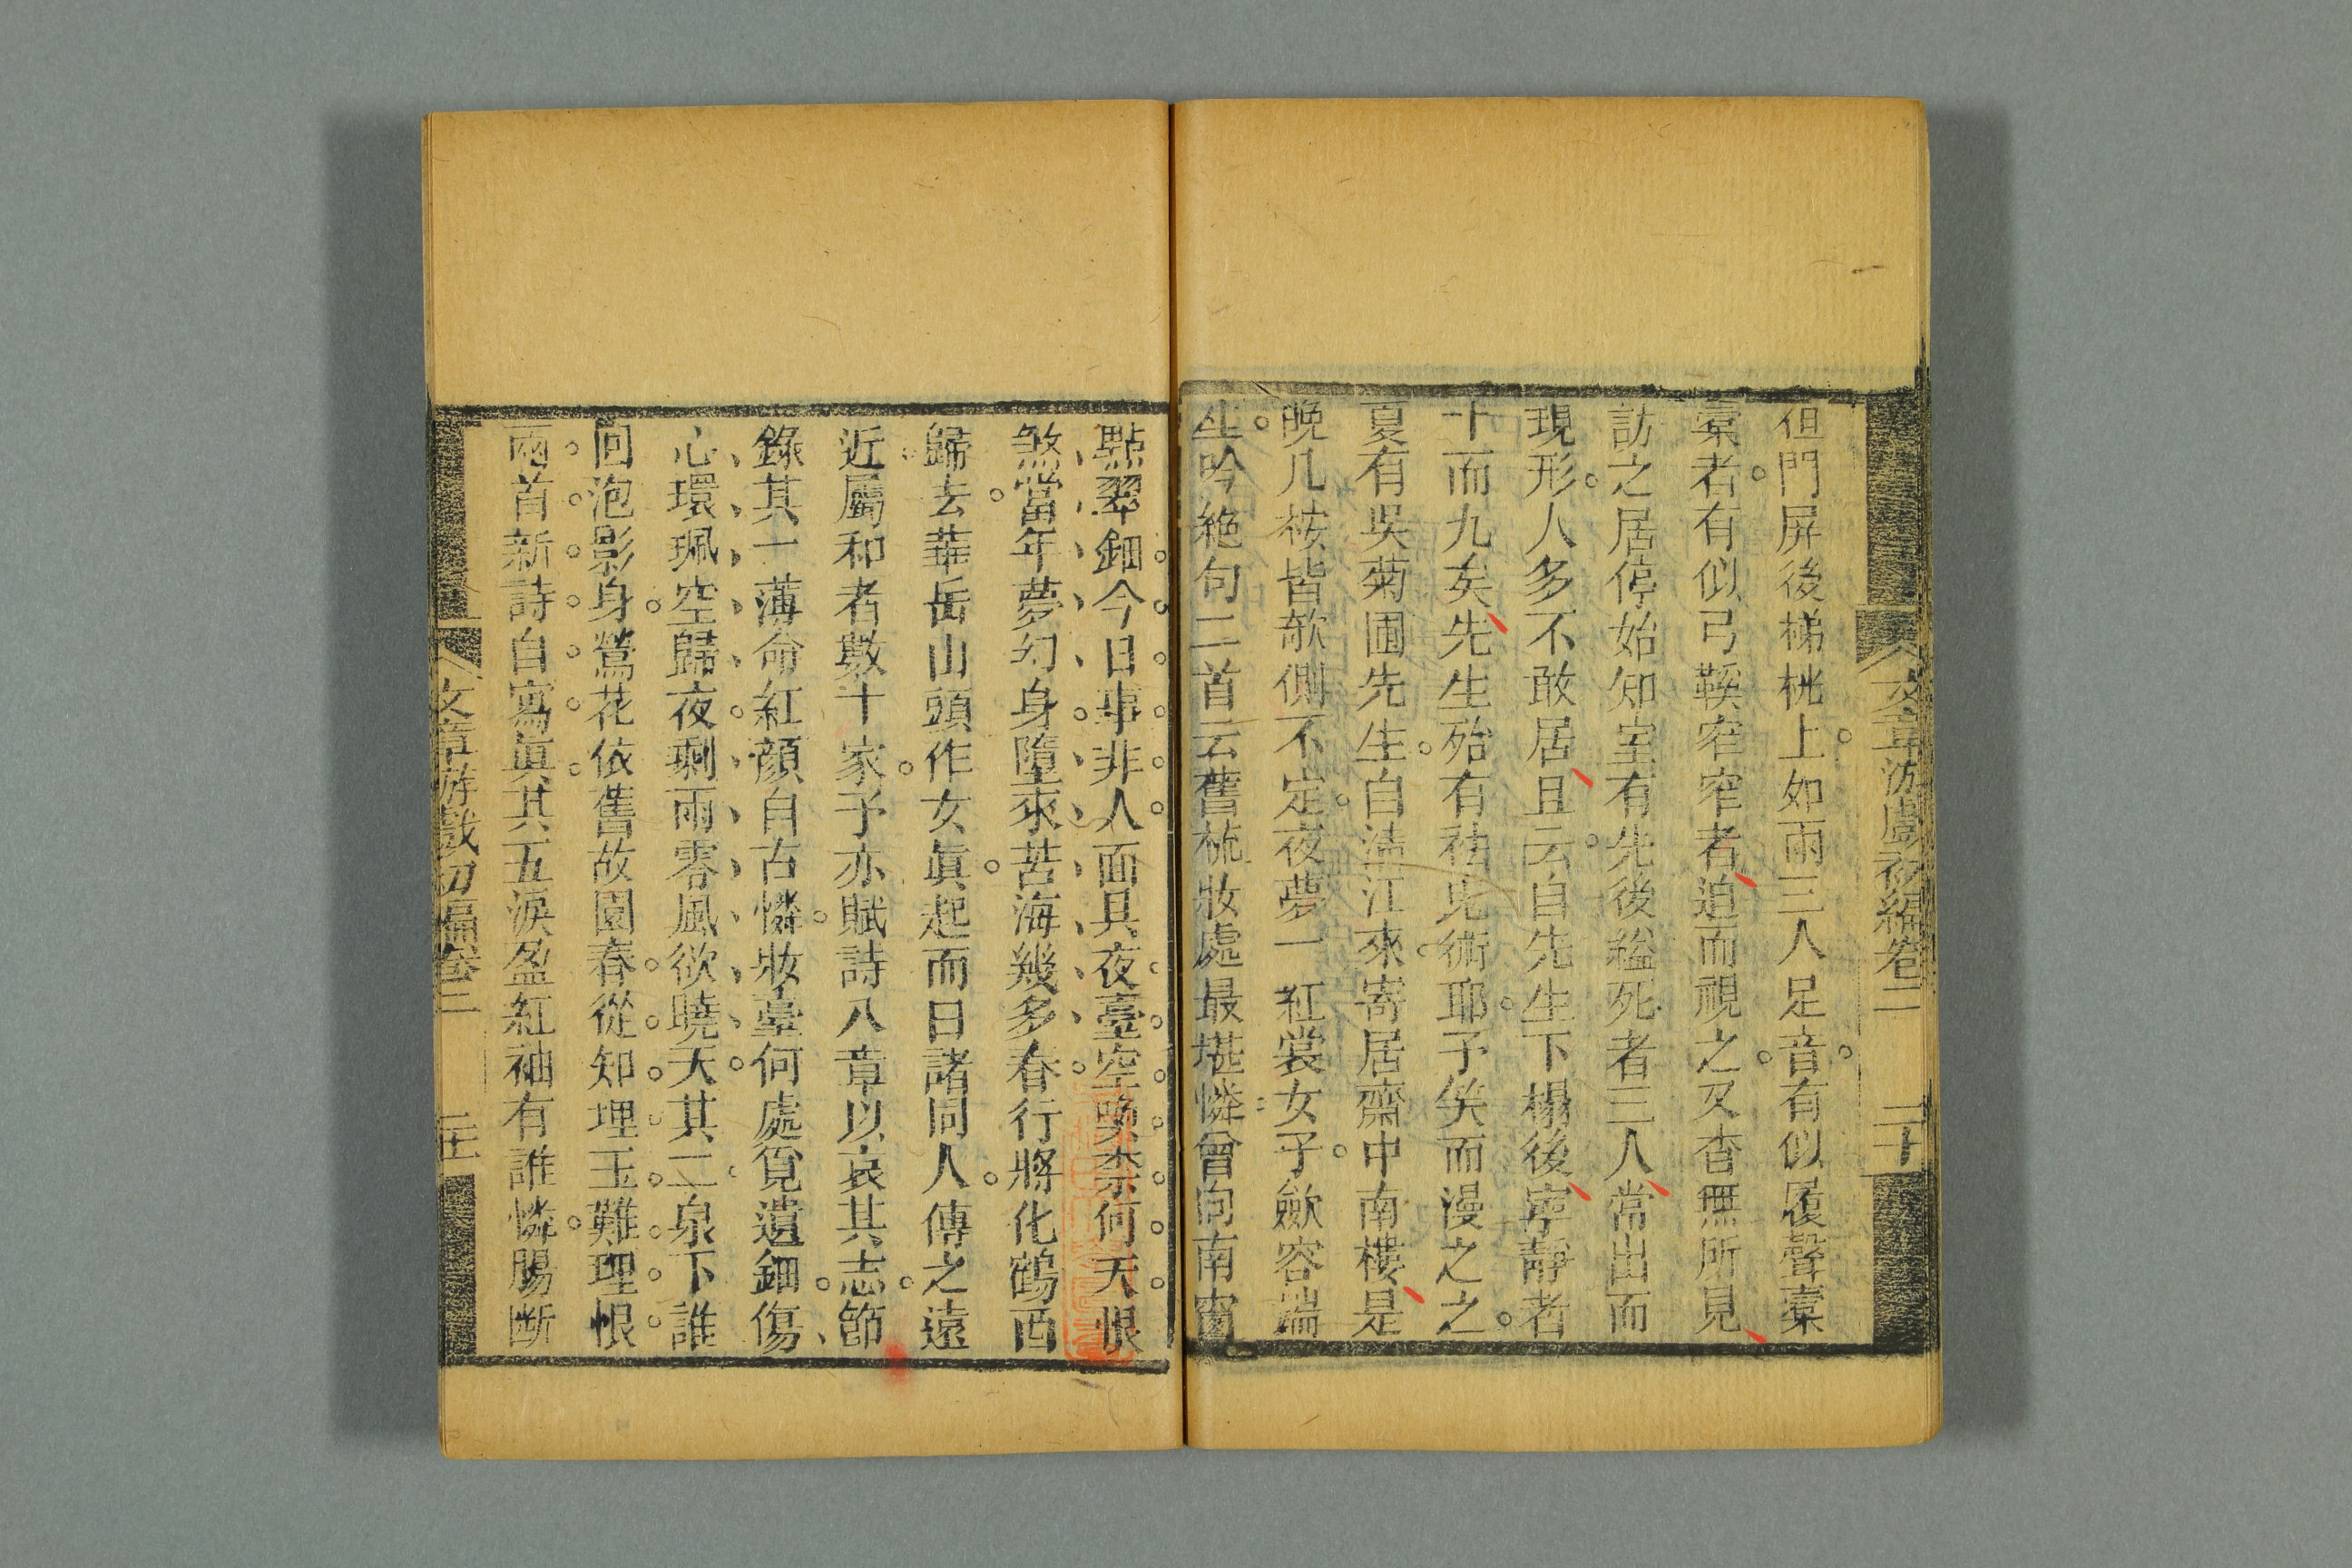 文章游戲初編卷二
二十
但門屏後梯桄上如兩三人足音有似履聲橐
橐者有似弓鞵窄窄者迫而視之又杳無所見
訪之居停始知室有先後縊死者三人常出而
現形人多不敢居且云自先生下榻後寧靜者
十而九矣先生殆有祛鬼術耶予笑而漫之之
夏有吳菊圃先生自清江來寄居齋中南樓是
晚几桉皆欹側不定夜夢一紅裳女子斂容端
坐吟絶句二首云舊梳妝處最堪憐曾向南窗
點翠鈿今日事非人面具夜臺空喚柰何天恨
煞當年夢幻身墮來苦海幾多春行將化鶴酉
歸去華岳山頭作女眞起而曰諸同人傳之遠
近屬和者數十家予亦賦詩八章以哀其志節
錄其一薄命紅顔自古憐妝臺何處覓遺鈿傷
心環珮空歸夜剩雨零風欲曉天其二泉下誰
回泡影身鶯花依舊故園春從知埋玉難埋恨
兩首新詩自寫眞其五淚盈紅袖有誰憐腸斷
文章游戲初編卷二
二十一